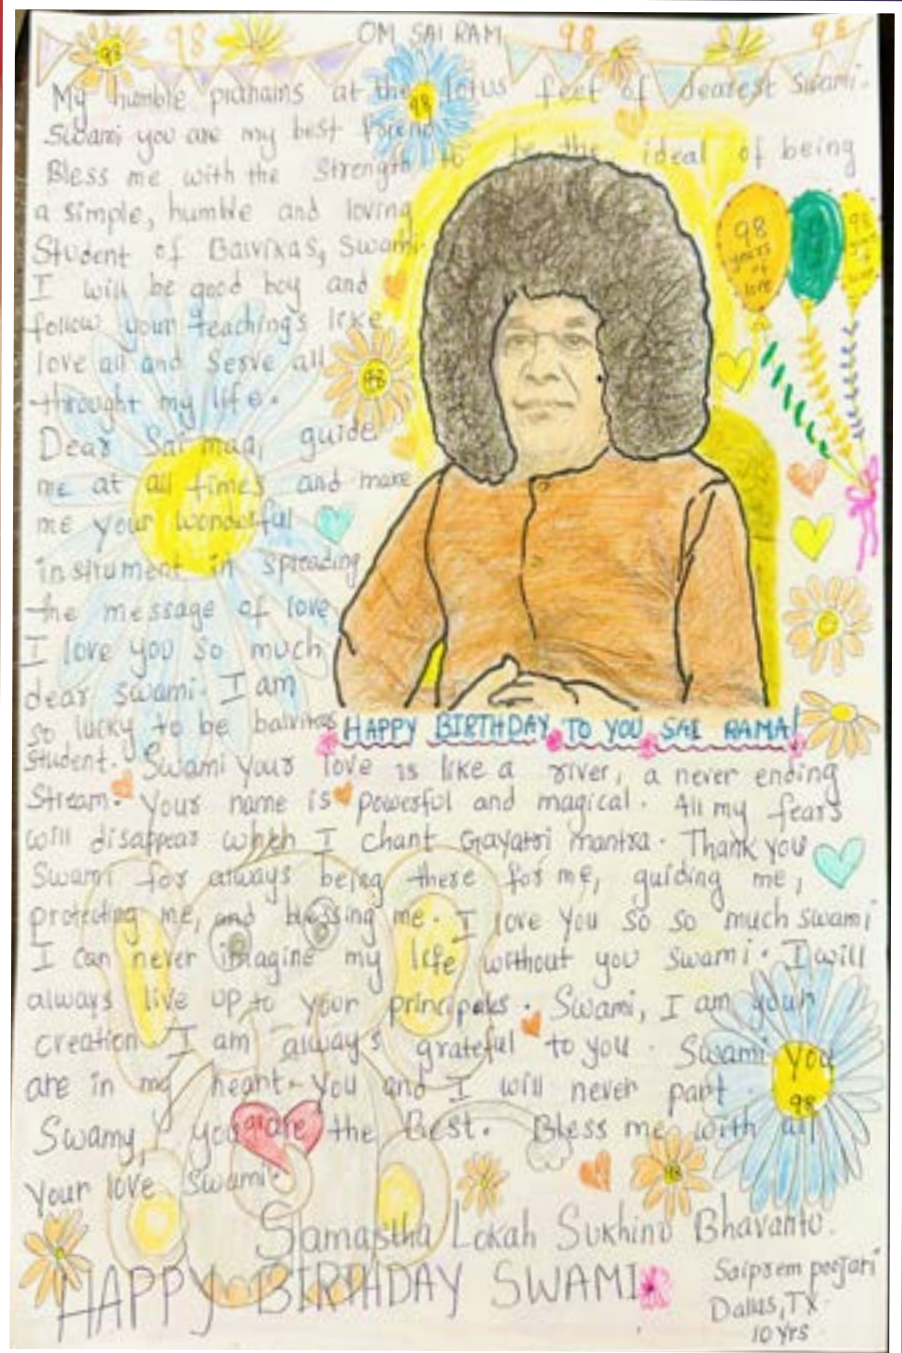 OM SAI RAM
98 98 98 98
98
My humble pranams at the lotus feet of dearest Swami.
Swami you are my best friend
Bless me with the Strength to be the ideal of being
a simple, humble and loving
Student of Balvikas, Swami.
I will be good boy and
follow your teachings like
love all and serve all
throught my life.
Dear Sai maa, guide
me at all times and make
me your wonderful
instrument in spreading
the message of love
I love you so much
dear swami. I am
so lucky to be balvikas
Student. Swami your love is like a river, a never ending
Stream. Your name is powerful and magical. All my fears
will disappear when I chant Gayatri mantra. Thank you
Swami for always being there for me, guiding me,
protecting me, and blessing me. I love you so so much swami
I can never imagine my life without you Swami. I will
always live up to your principles. Swami, I am your
creation I am always grateful to you. Swami you
are in my heart. You and I will never part.
Swamy, you are the Best. Bless me with all
your love Swami.
98 years of love
98
HAPPY BIRTHDAY TO YOU SAI RAMA!
98
98
Samastha Lokah Sukhino Bhavantu.
HAPPY BIRTHDAY SWAMI
Saiprem poojari
Dallas, TX.
10 yrs